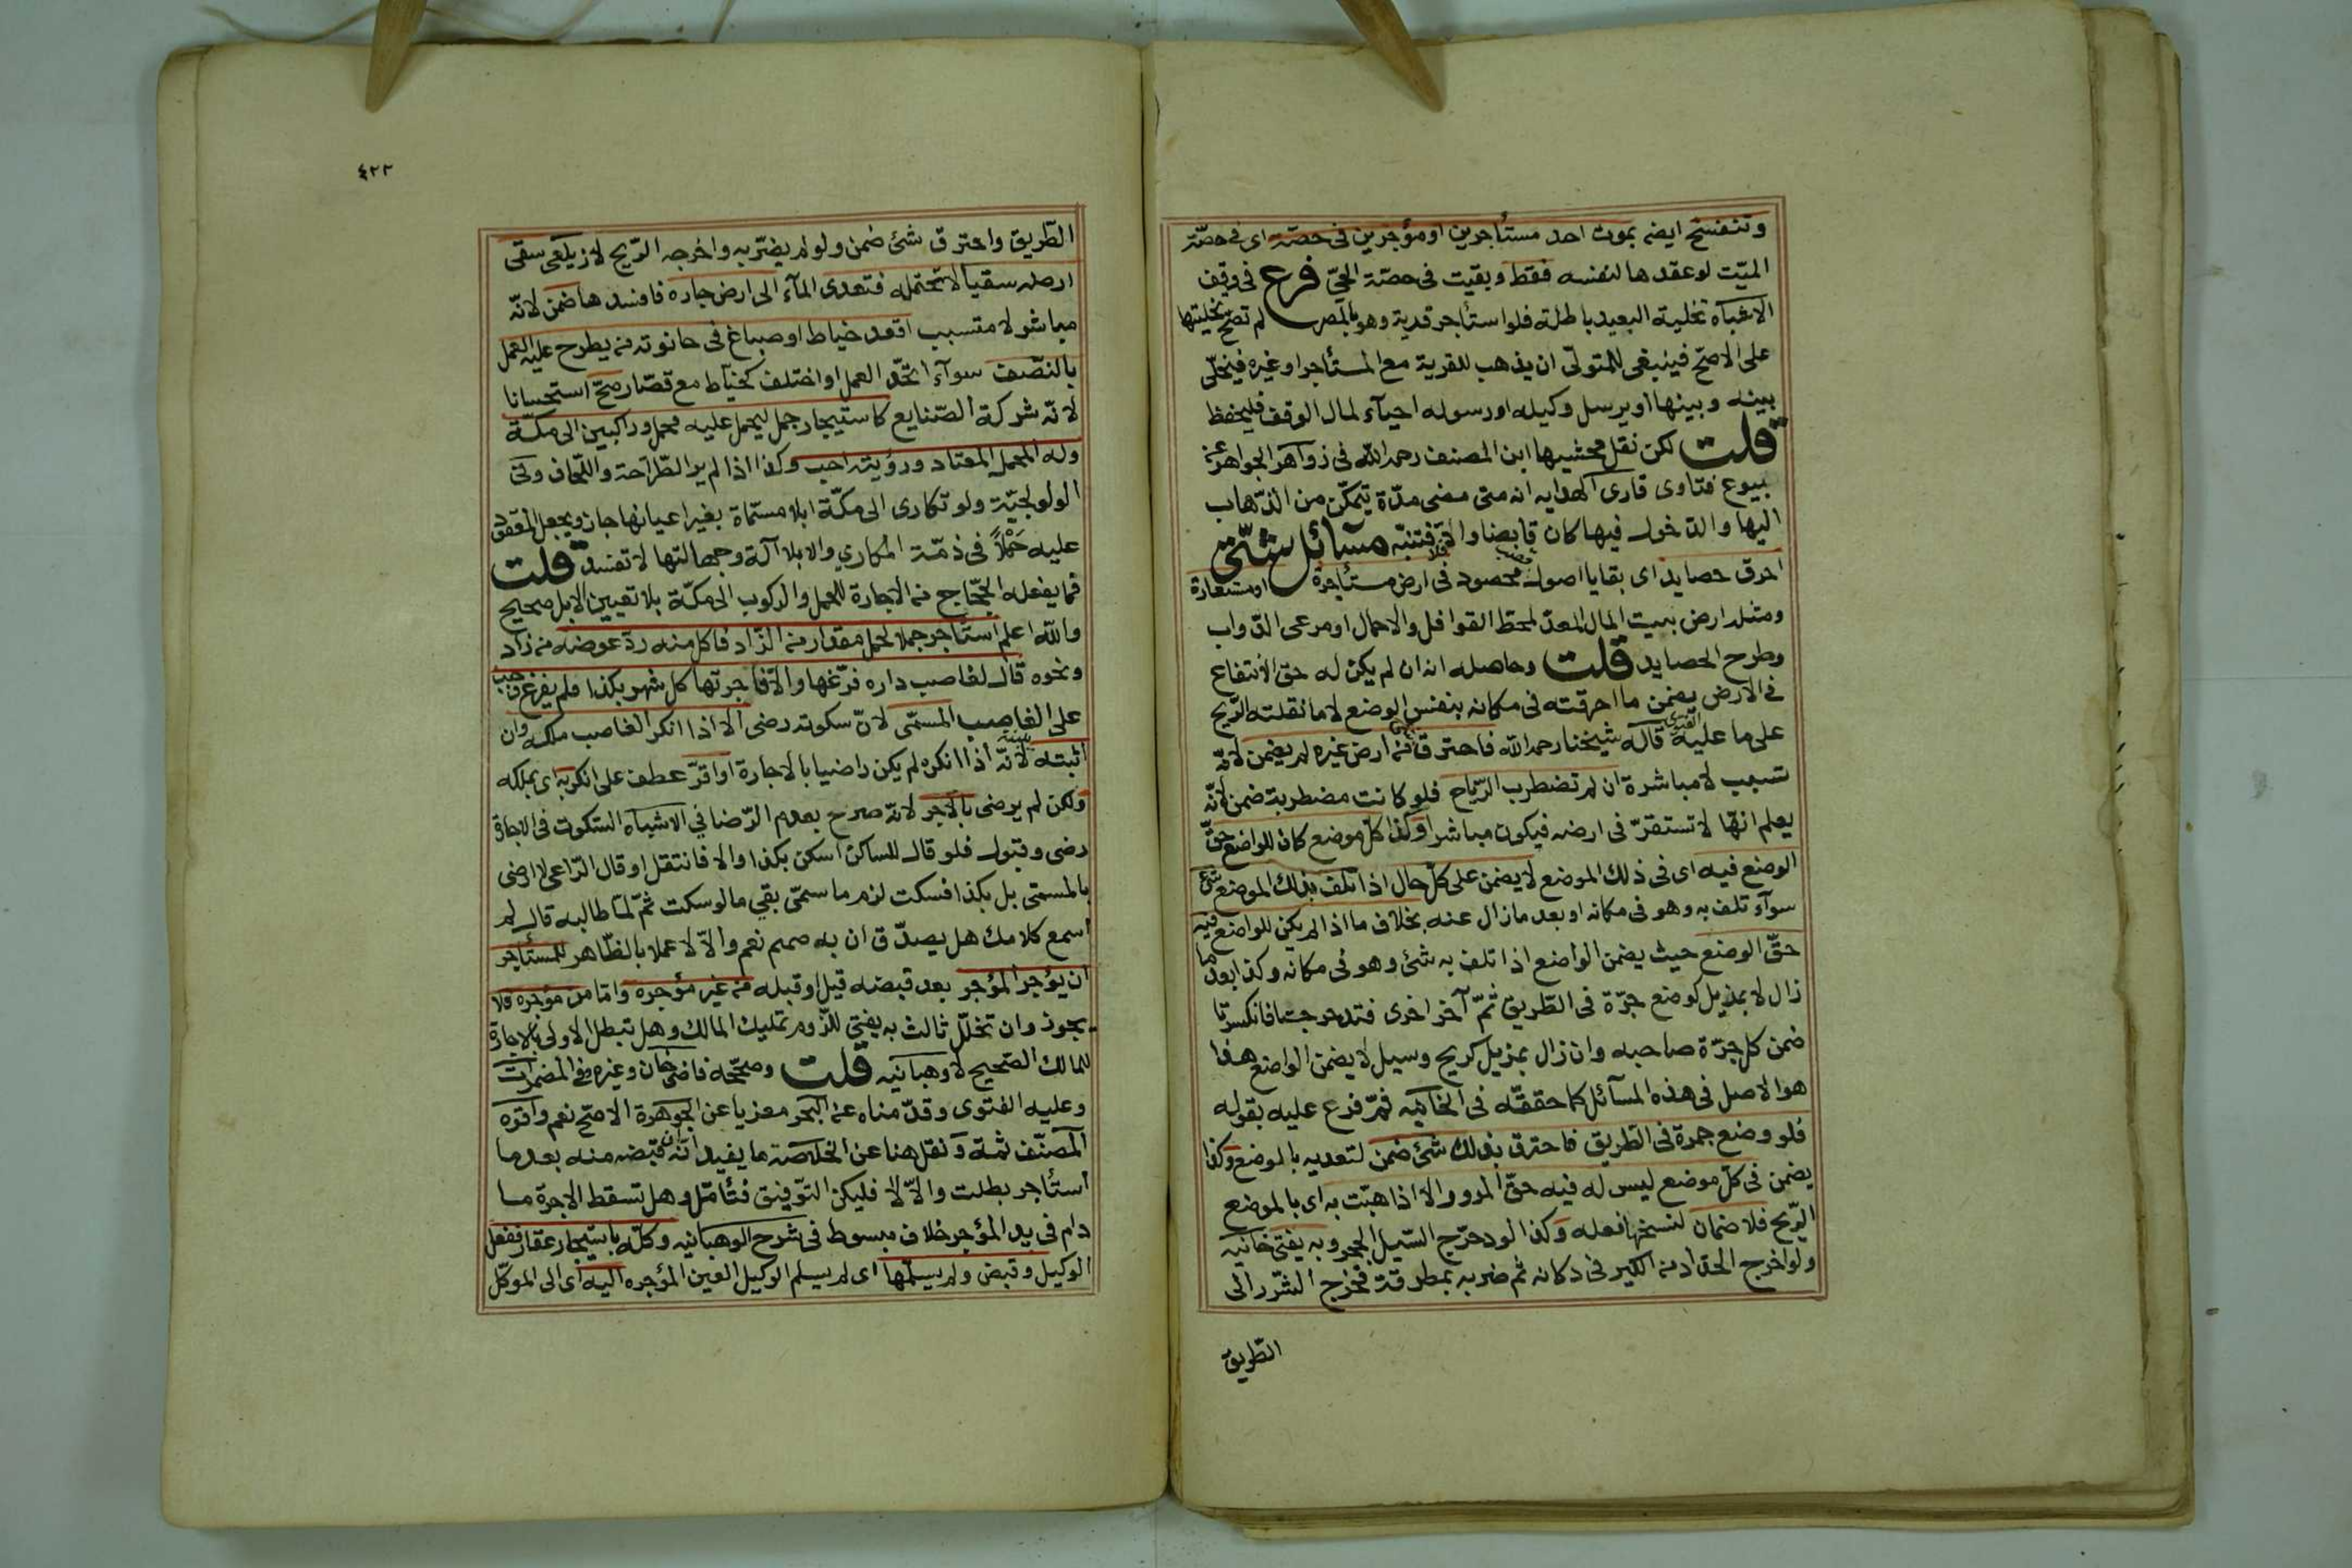 وتنفسخ ايضا بموت احد مستأجرين او مؤجرين فى حصته اى فى حصّة
الميّت لو عقدها لنفسه فقط وبقيت فى حصّة الحىّ فرع فى وقف
الاشباه تخلية البعيد باطلة فلو استأجر قرية وهو بالمصر لم تصحّ تخليتها
على الاصحّ فينبغى للمتولّى ان يذهب للقرية مع المستأجر او غيره فيخلّى
بينه وبينها او يرسل وكيله او رسوله احيآء لمال الوقف فليحفظ
قلت لكن نقل محشيها ابن المصنف رحمه الله فى زواهر الجواهر عن
بيوع فتاوى قارى الهدايه انه متى مضى مدّة يتمكّن من الذّهاب
اليها والدّخول فيها كان قابضا والا فلا فتنبّه مسائل شتّى
احرق حصايد اى بقايا اصول قصب محصود فى ارض مستأجرة او مستعارة
ومثله ارض بيت المال المعدّ لمحط القوافل والاحمال او مرعى الدّواب
وطرح الحصايد قلت وحاصله انه ان لم يكن له حق الانتفاع
فى الارض يضمن ما احرقته فى مكانه بنفس الوضع لا ما نقلته الرّيح
على ما عليه الفتوى قاله شيخنا رحمه الله فاحترق شئ من ارض غيره لم يضمن لانّه
تسبب لا مباشرة ان لم تضطرب الرّياح فلو كانت مضطربة ضمن لانّه
يعلم انّها لا تستقرّ فى ارضه فيكون مباشرا وكذا كلّ موضع كان للواضع حقّ
الوضع فيه اى فى ذلك الموضع لا يضمن على كلّ حال اذا تلف بذلك الموضع شئ
سوآء تلف به وهو فى مكانه او بعد ما زال عنه بخلاف ما اذا لم يكن للواضع فيه
حقّ الوضع حيث يضمن الواضع اذا تلف به شئ وهو فى مكانه وكذا بعد ما
زال لا بمزيل كوضع جرّة فى الطّريق ثمّ آخر اخرى فتدحرجتا فانكسرتا
ضمن كل جرّة صاحبه وان زال بمزيل كريح وسيل لا يضمن الواضع هذا
هو الاصل فى هذه المسآئل كما حققّه فى الخانيه ثمّ فرع عليه بقوله
فلو وضع جمرة فى الطّريق فاحترق بذلك شئ ضمن لتعديه بالوضع وكذا
يضمن فى كلّ موضع ليس له فيه حقّ المرور الا اذا هبّت به اى بالموضع
الرّيح فلا ضمان لنسخها فعله وكذا لو دحرج السّيل الحجر وبه يفتى خانيه
ولو اخرج الحدّاد من الكير فى دكانه ثم ضربه بمطرقة فخرج الشّرر الى
الطّريق
٤٢٢
الطّريق واحترق شئ ضمن ولو لم يضربه واخرجه الرّيح لا زيلعى سقى
ارضه سقيا لا تحتمله فتعدى المآء الى ارض جاره فافسدها ضمن لانّه
مباشر لا متسبب اقعد خياط او صباغ فى حانوته من يطرح عليه العمل
بالنّصف سوآء اتّحد العمل او اختلف كخيّاط مع قصّار صحّ استحسانا
لانّه شركة الصّنايع كاستيجار جمل ليحمل عليه محمل وراكبين الى مكّة
وله المحمل المعتاد ورؤيته احب وكذا اذا لم ير الطّراحة واللّحاف وفى
الولولجيّة ولو تكارى الى مكّة ابلا مسمّاة بغير اعيانها جاز ويجعل المعقود
عليه حَمْلاً فى ذمّة المكاري والابل آلة وجهالتها لا تفسد قلت
فما يفعله الحّجّاج من الاجارة للحمل والركوب الى مكّة بلا تعيين الابل صحيح
والله اعلم استأجر جملا لحمل مقدار من الزّاد فاكل منه ردّ عوضه من زاد
ونحوه قال لغاصب داره فرّغها والّا فاجرتها كل شهر بكذا فلم يفرغ وجب
على الغاصب المسمّى لانّ سكوته رضى الا اذا انكر الغاصب ملكه وان
اثبته ببينة لانّه اذا انكره لم يكن راضيا بالاجارة او اقرّ عطف على انكر به اى بملكه
ولكن لم يرضى بالاجر لانه صرح بعدم الرّضا في الاشباه السّكوت فى الاجارة
رضى وقبول فلو قال للساكن اسكن بكذا والا فانتقل او قال الرّاعى لا ارضى
بالمسمّى بل بكذا فسكت لزم ما سمّى بقي ما لو سكت ثمّ لمّا طالبه قال لم
اسمع كلامك هل يصدّق ان به صمم نعم والّا لا عملا بالظّاهر للمستأجر
ان يؤجر المؤجر بعد قبضه قيل او قبله من غير مؤجره وامّا من مؤجره فلا
يجوز وان تخلّل ثالث به يفتى للزّوم تمليك المالك وهل تبطل الاولى بالاجارة
للمالك الصّحيح لا وهبانيه قلت وصحّحه قاضى خان وغيره وفى المضمرات
وعليه الفتوى وقدّمناه عن البحر معزيا عن الجوهرة الاصحّ نعم واقره
المصنّف ثمة ونقل هنا عن الخلاصة ما يفيد انّه ان قبضه منه بعد ما
استأجر بطلت والّا لا فليكن التوّفيق فتأمّل وهل تسقط الاجرة ما
دام فى يد المؤجر خلاف مبسوط فى شرح الوهبانيه وكلّه باستيجار عقار ففعل
الوكيل وقبض ولم يسلّمها اى لم يسلم الوكيل العين المؤجره اليه اى الى الموكّل